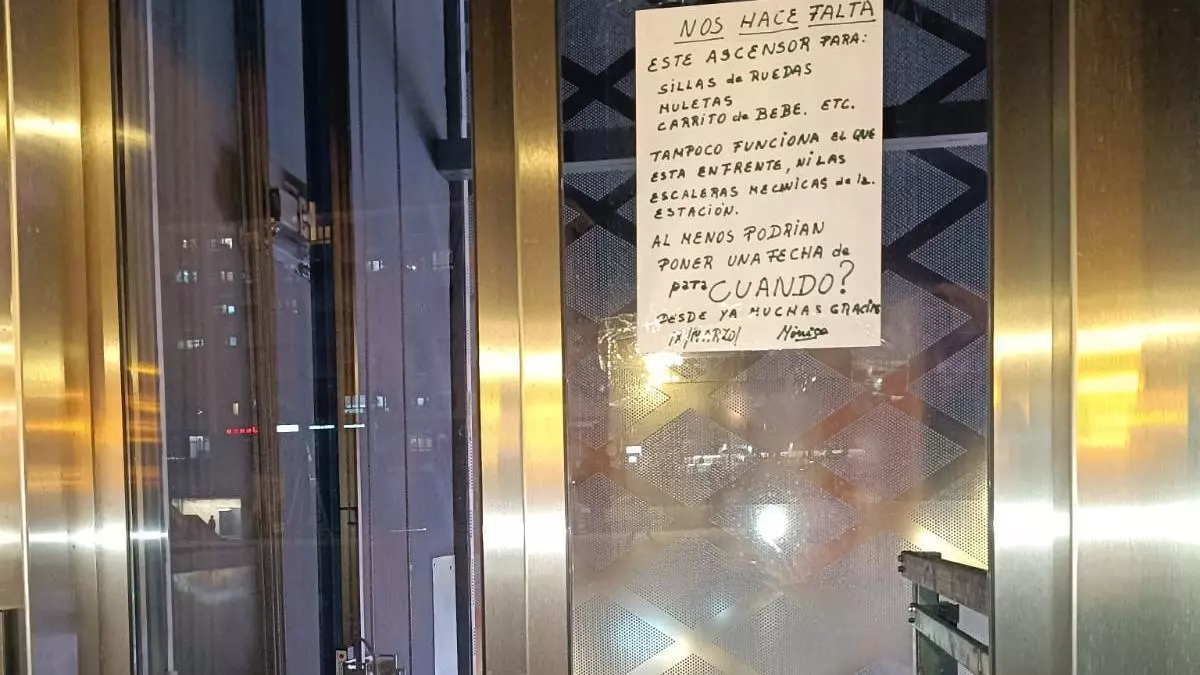 NOS HACE FALTA
ESTE ASCENSOR PARA:
SILLAS de RUEDAS
MULETAS
CARRITO de BEBE. ETC.
TAMPOCO FUNCIONA EL QUE
ESTA ENFRENTE, NI LAS
ESCALERAS MECNICAS de la.
ESTACIÓN.
AL MENOS PODRIAN
PONER UNA FECHA de
para CUANDO?
DESDE YA MUCHAS GRACIAS
/MARZO/ Mónica